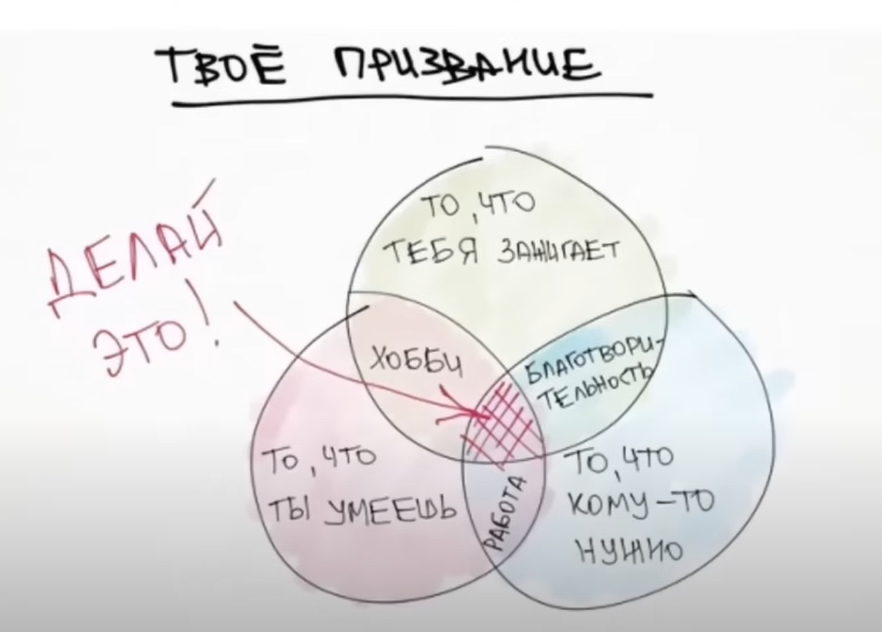 ТВОЁ ПРИЗВАНИЕ
ДЕЛАЙ
ЭТО!
ТО, ЧТО
ТЕБЯ ЗАЖИГАЕТ
ХОББИ
БЛАГОТВОРИ-
ТЕЛЬНОСТЬ
ТО, ЧТО
ТЫ УМЕЕШЬ
РАБОТА
ТО, ЧТО
КОМУ-ТО
НУЖНО